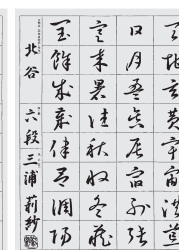 天地玄黄宇宙洪荒
日月盈昃辰宿列張
寒来暑往秋収冬蔵
閏餘成歳律呂調陽
北谷 六段 三浦莉紗